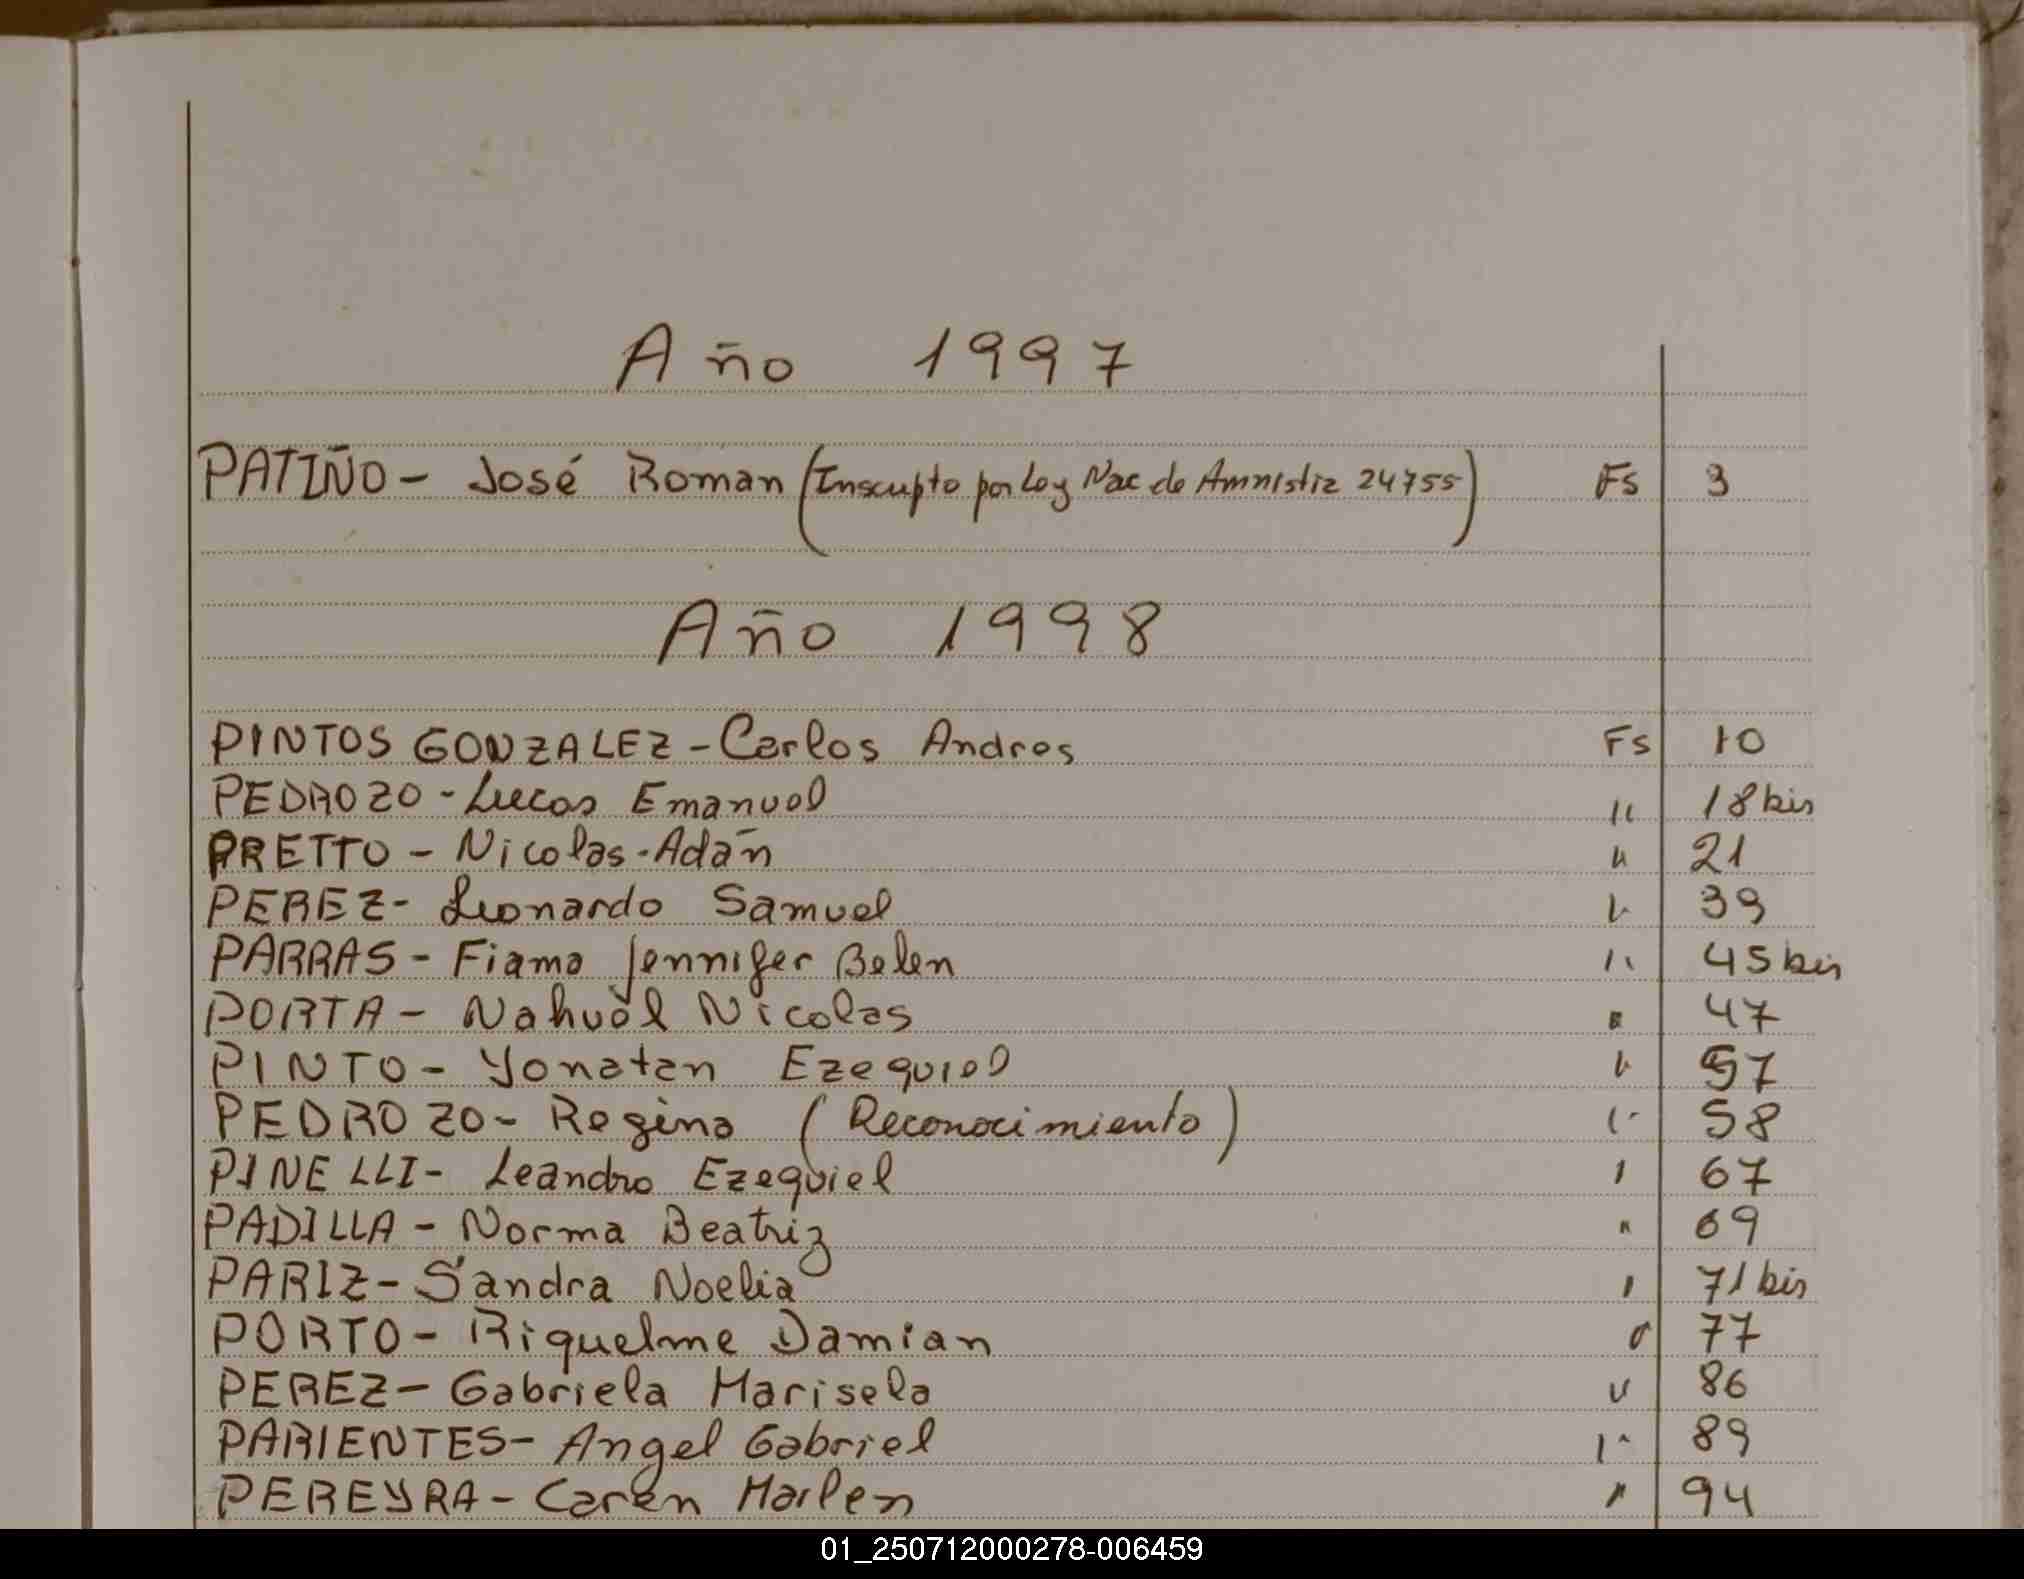 Año 1997
PATIÑO - José Roman (Inscripto por Ley Nac de Amnistia 24755) Fs 3
Año 1998
PINTOS GONZALEZ - Carlos Andres Fs 10
PEDROZO - Lucas Emanuel " 18 bis
PRETTO - Nicolas - Adán " 21
PEREZ - Leonardo Samuel " 39
PARRAS - Fiama Jennifer Belen " 45 bis
PORTA - Nahuel Nicolas " 47
PINTO - Yonatan Ezequiel " 57
PEDROZO - Regina (Reconocimiento) " 58
PINELLI - Leandro Ezequiel " 67
PADILLA - Norma Beatriz " 69
PARIZ - Sandra Noelia " 71 bis
PORTO - Riquelme Damian " 77
PEREZ - Gabriela Marisela " 86
PARIENTES - Angel Gabriel " 89
PEREYRA - Caren Marlen " 94
01_250712000278-006459